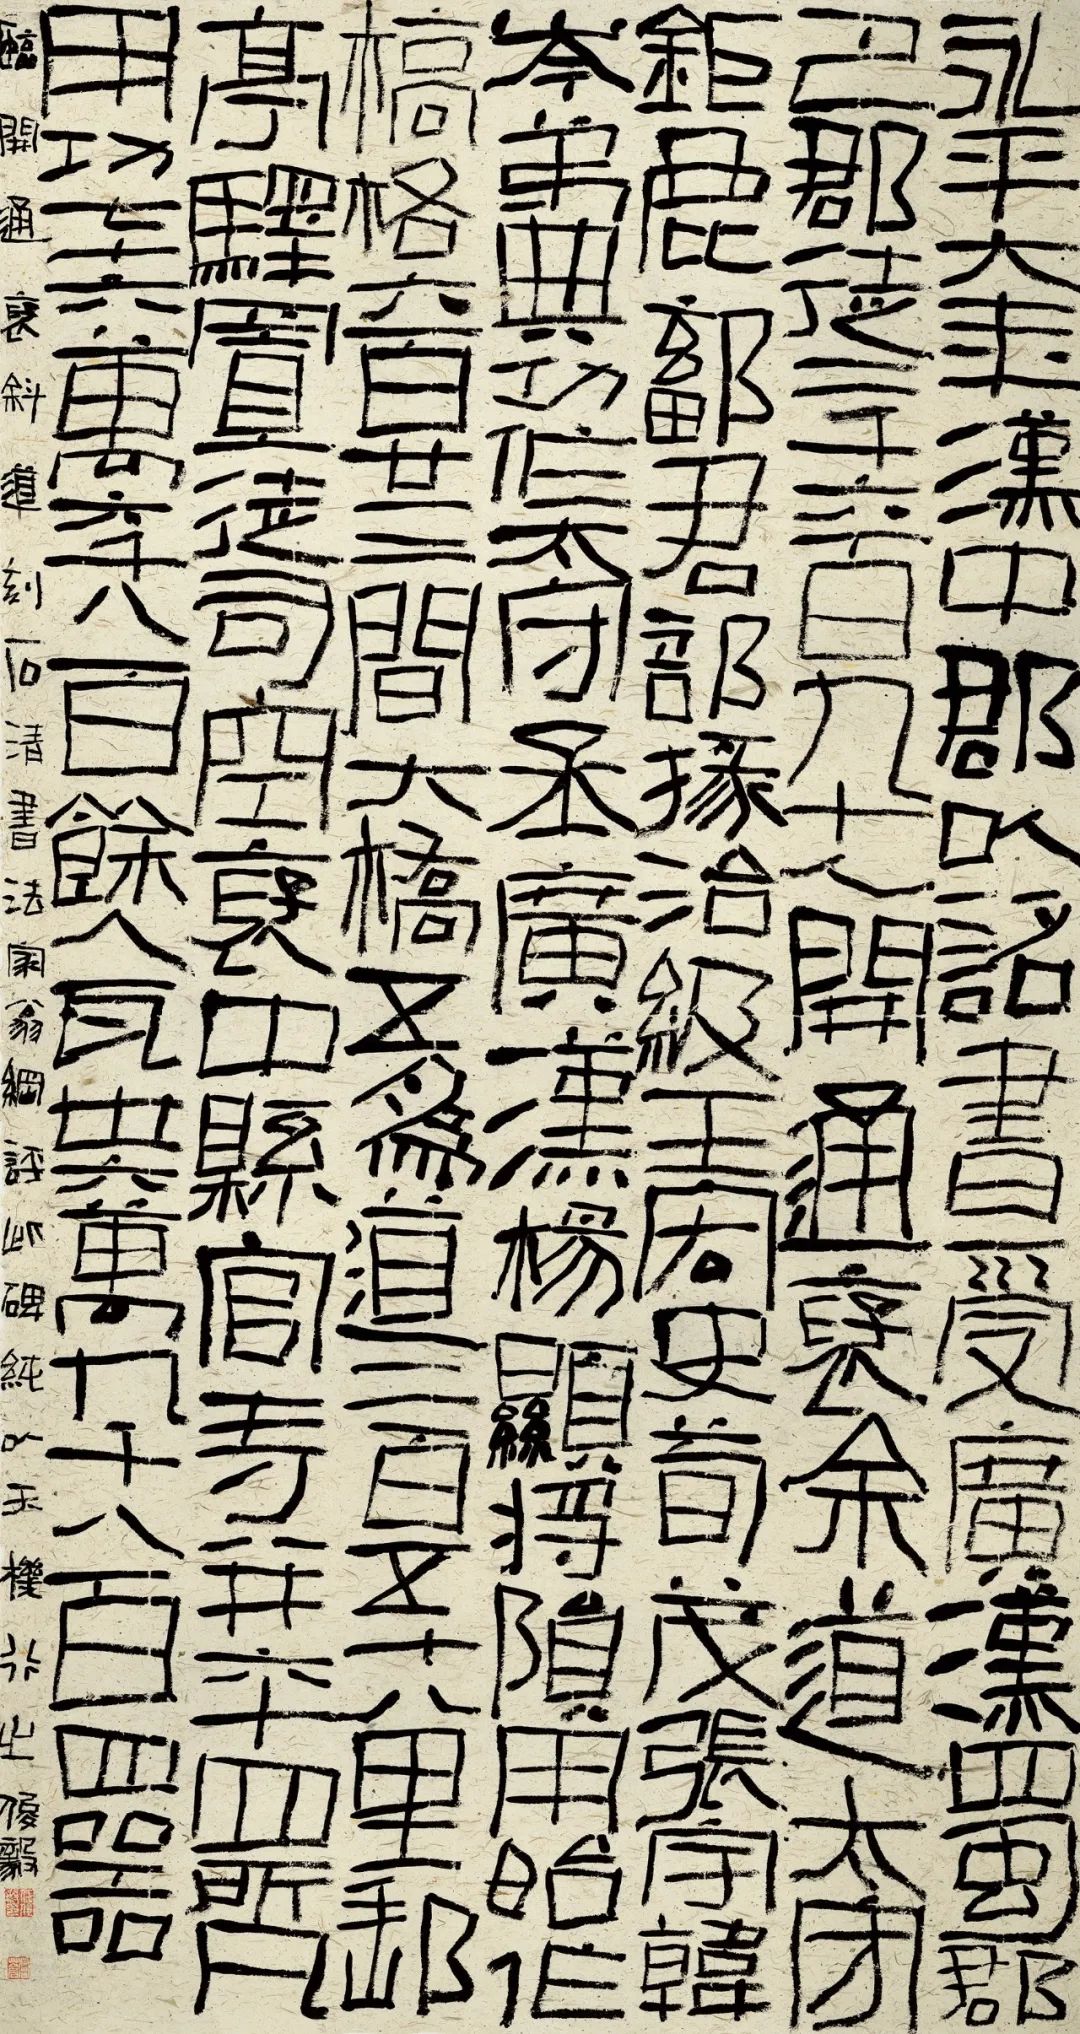 永平六年漢中郡以詔書受廣漢蜀郡
巴郡徒二千六百九十人開通褒余道太守
鉅鹿鄐君部掾治級王宏史荀茂張宇韓
岑弟典功作太守丞廣漢楊顯將隕用始作
槁格六百廿三間大橋五爲道二百五十八里郵
亭驛置徒司空褒中縣官寺并六十四所凡
用功七十六萬六千八百餘人瓦卅六萬九千八百四器
臨開通褒斜道刻石清書法家翁綱評此碑純以天機行之俊毅